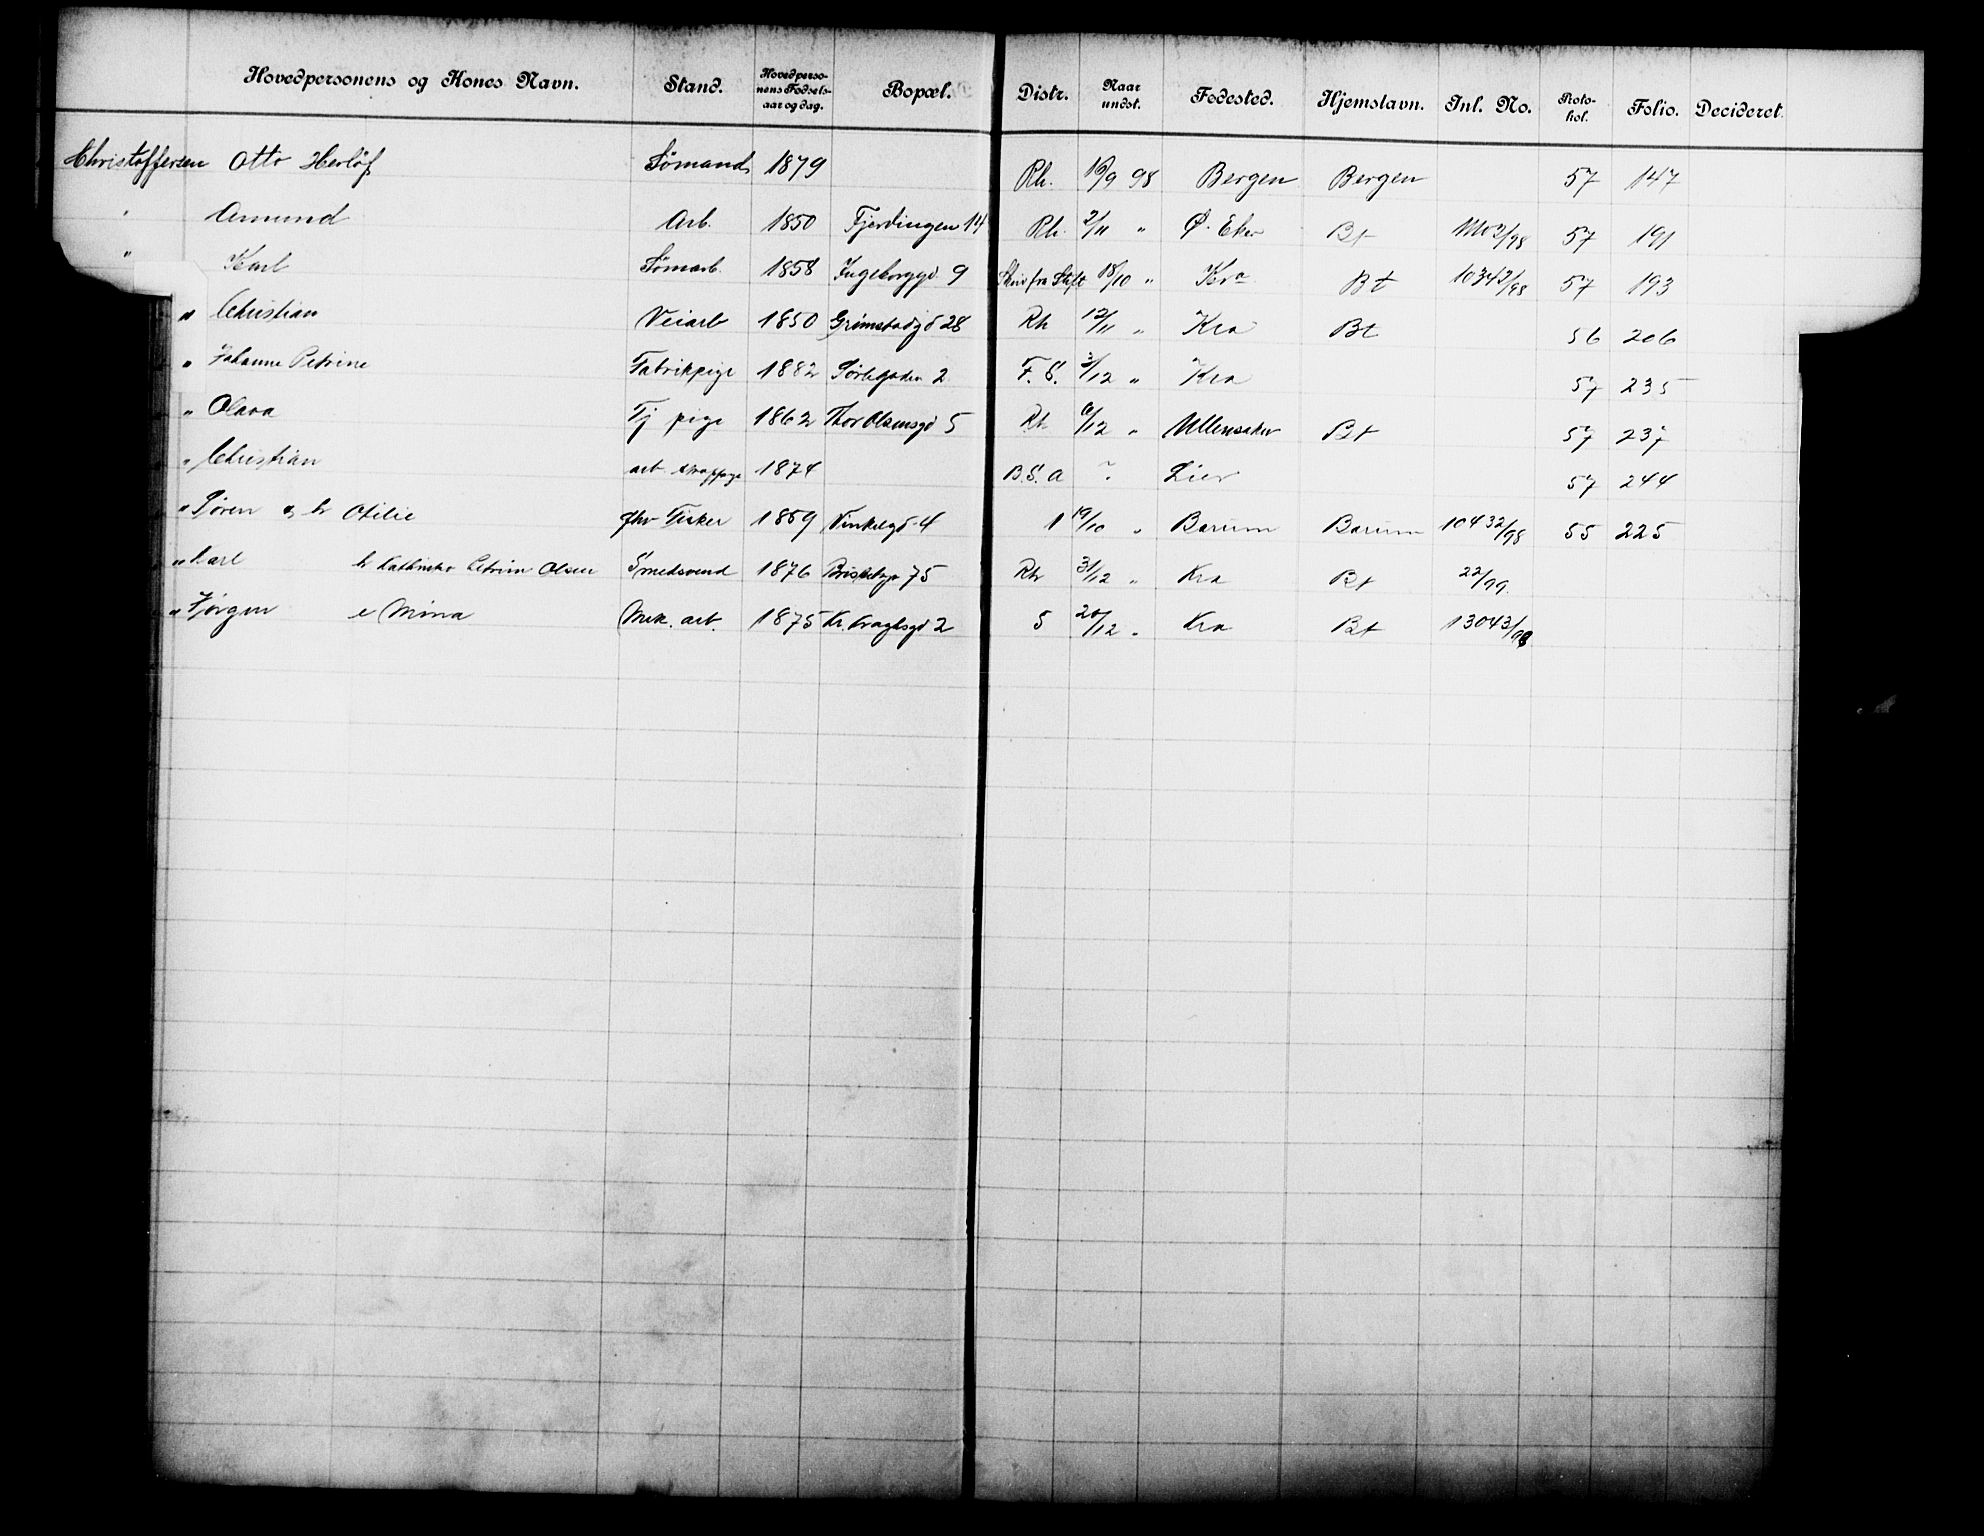 Hovedpersonens og Kones Navn. Stand. Hovedperso-nens Fødsels-aar og dag. Bopæl. Distr. Naar undst. Fødested. Hjemstavn. Inl. No. Proto-kol. Folio. Decideret.
Christoffersen Otto Herlöf Sömand 1879 Rh. 16/9 98 Bergen Bergen 57 147
" Amund Arb. 1850 Fjerdingen 14 Rh. 2/11 " Ø. Eker Bt 57 191
" Karl Sömarb. 1858 Ingeborggd 9 Skriv fra Stift 18/10 " Kra Bt 10343/98 57 193
" Christian Veiarb 1850 Grimstadgd 28 Rh 12/11 " Kra Bt 56 206
" Johanne Petrine Fabrikpige 1882 Sörligaden 2 F. S. 3/12 " Kra 57 235
" Olava Tj pige 1862 Thor Olsensgd 5 Rh 6/12 " Ullensaker Bt 57 237
" Christian arb. 1874 B.S.A ? Lier 57 244
" Sören & h Otilie fhv Fisker 1859 Vinkelgd 4 1 19/10 " Bærum Bærum 10432/98 55 225
" Karl h Kathinka Petrine Olsen Smedsvend 1876 Briskebyv 75 Rh 31/12 " Kra Bt 22/99.
" Jørgen e Mina Mek. arb. 1875 Kr. Kroghsgd 2 5 20/12 " Kra Bt 13043/98